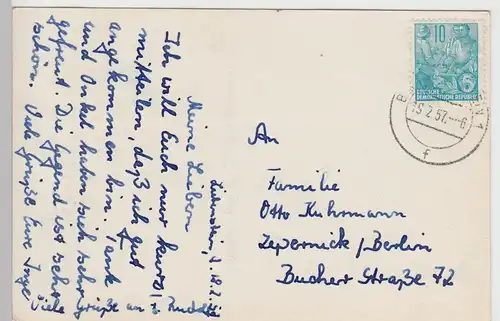 Meine Lieben
Ich will Euch nur kurz
mitteilen, daß ich gut
angekommen bin. Tante
und Onkel haben sich sehr
gefreut. Die Gegend ist sehr
schön. Viele Grüße Eure Inge
Viele Grüße an
10
DEUTSCHE
DEMOKRATISCHE REPUBLIK
13.2.57.--6
f
An
Familie
Otto Kuhrmann
Zepernick/Berlin
Bucher Straße 72